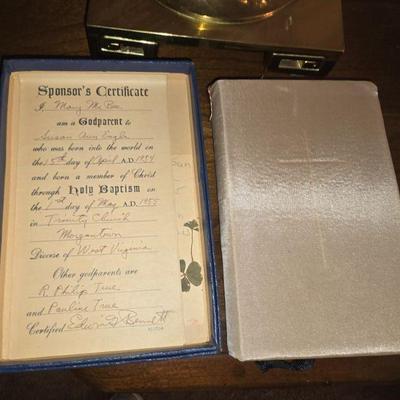 Sponsor's Certificate
I, Mary McBee
am a Godparent to
Susan Ann Engle
who was born into the world on
the 15th day of April A.D. 1954
and born a member of Christ
through Holy Baptism on
the 1st day of May A.D. 1955
in Trinity Church
Morgantown
Diocese of West Virginia
Other godparents are
R. Philip True
and Pauline True
Certified Edwin Bennett